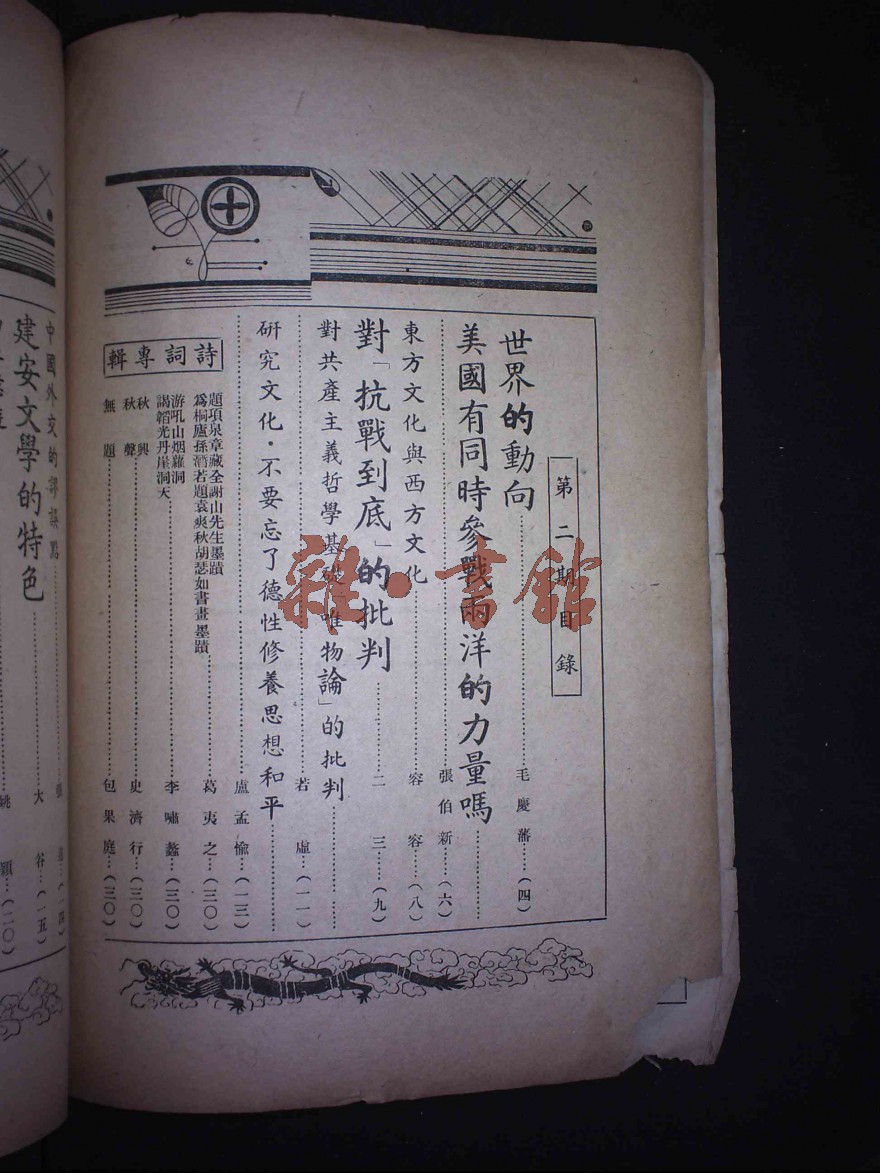 第二期目錄
世界的動向……毛慶蕃…(四)
美國有同時參戰兩洋的力量嗎……
張伯新…(六)
東方文化與西方文化……容容…(八)
對「抗戰到底」的批判……二三…(九)
對共產主義哲學基礎「唯物論」的批判……
若虛…(一一)
研究文化·不要忘了德性修養思想和平……
盧孟愉…(一三)
詩詞專輯
題項泉章藏全謝山先生墨蹟
爲桐廬孫潛若題袁爽秋胡瑟如書畫墨蹟……葛夷之…(三〇)
游吼山烟蘿洞
謁韜光丹崖洞天……李嘯盦…(三〇)
秋興
秋聲……史濟行…(三〇)
無題……包果庭…(三〇)
中國外交的
(一四)
建安文學的特色
大谷…(一五)
姚穎…(二〇)
雜·書館